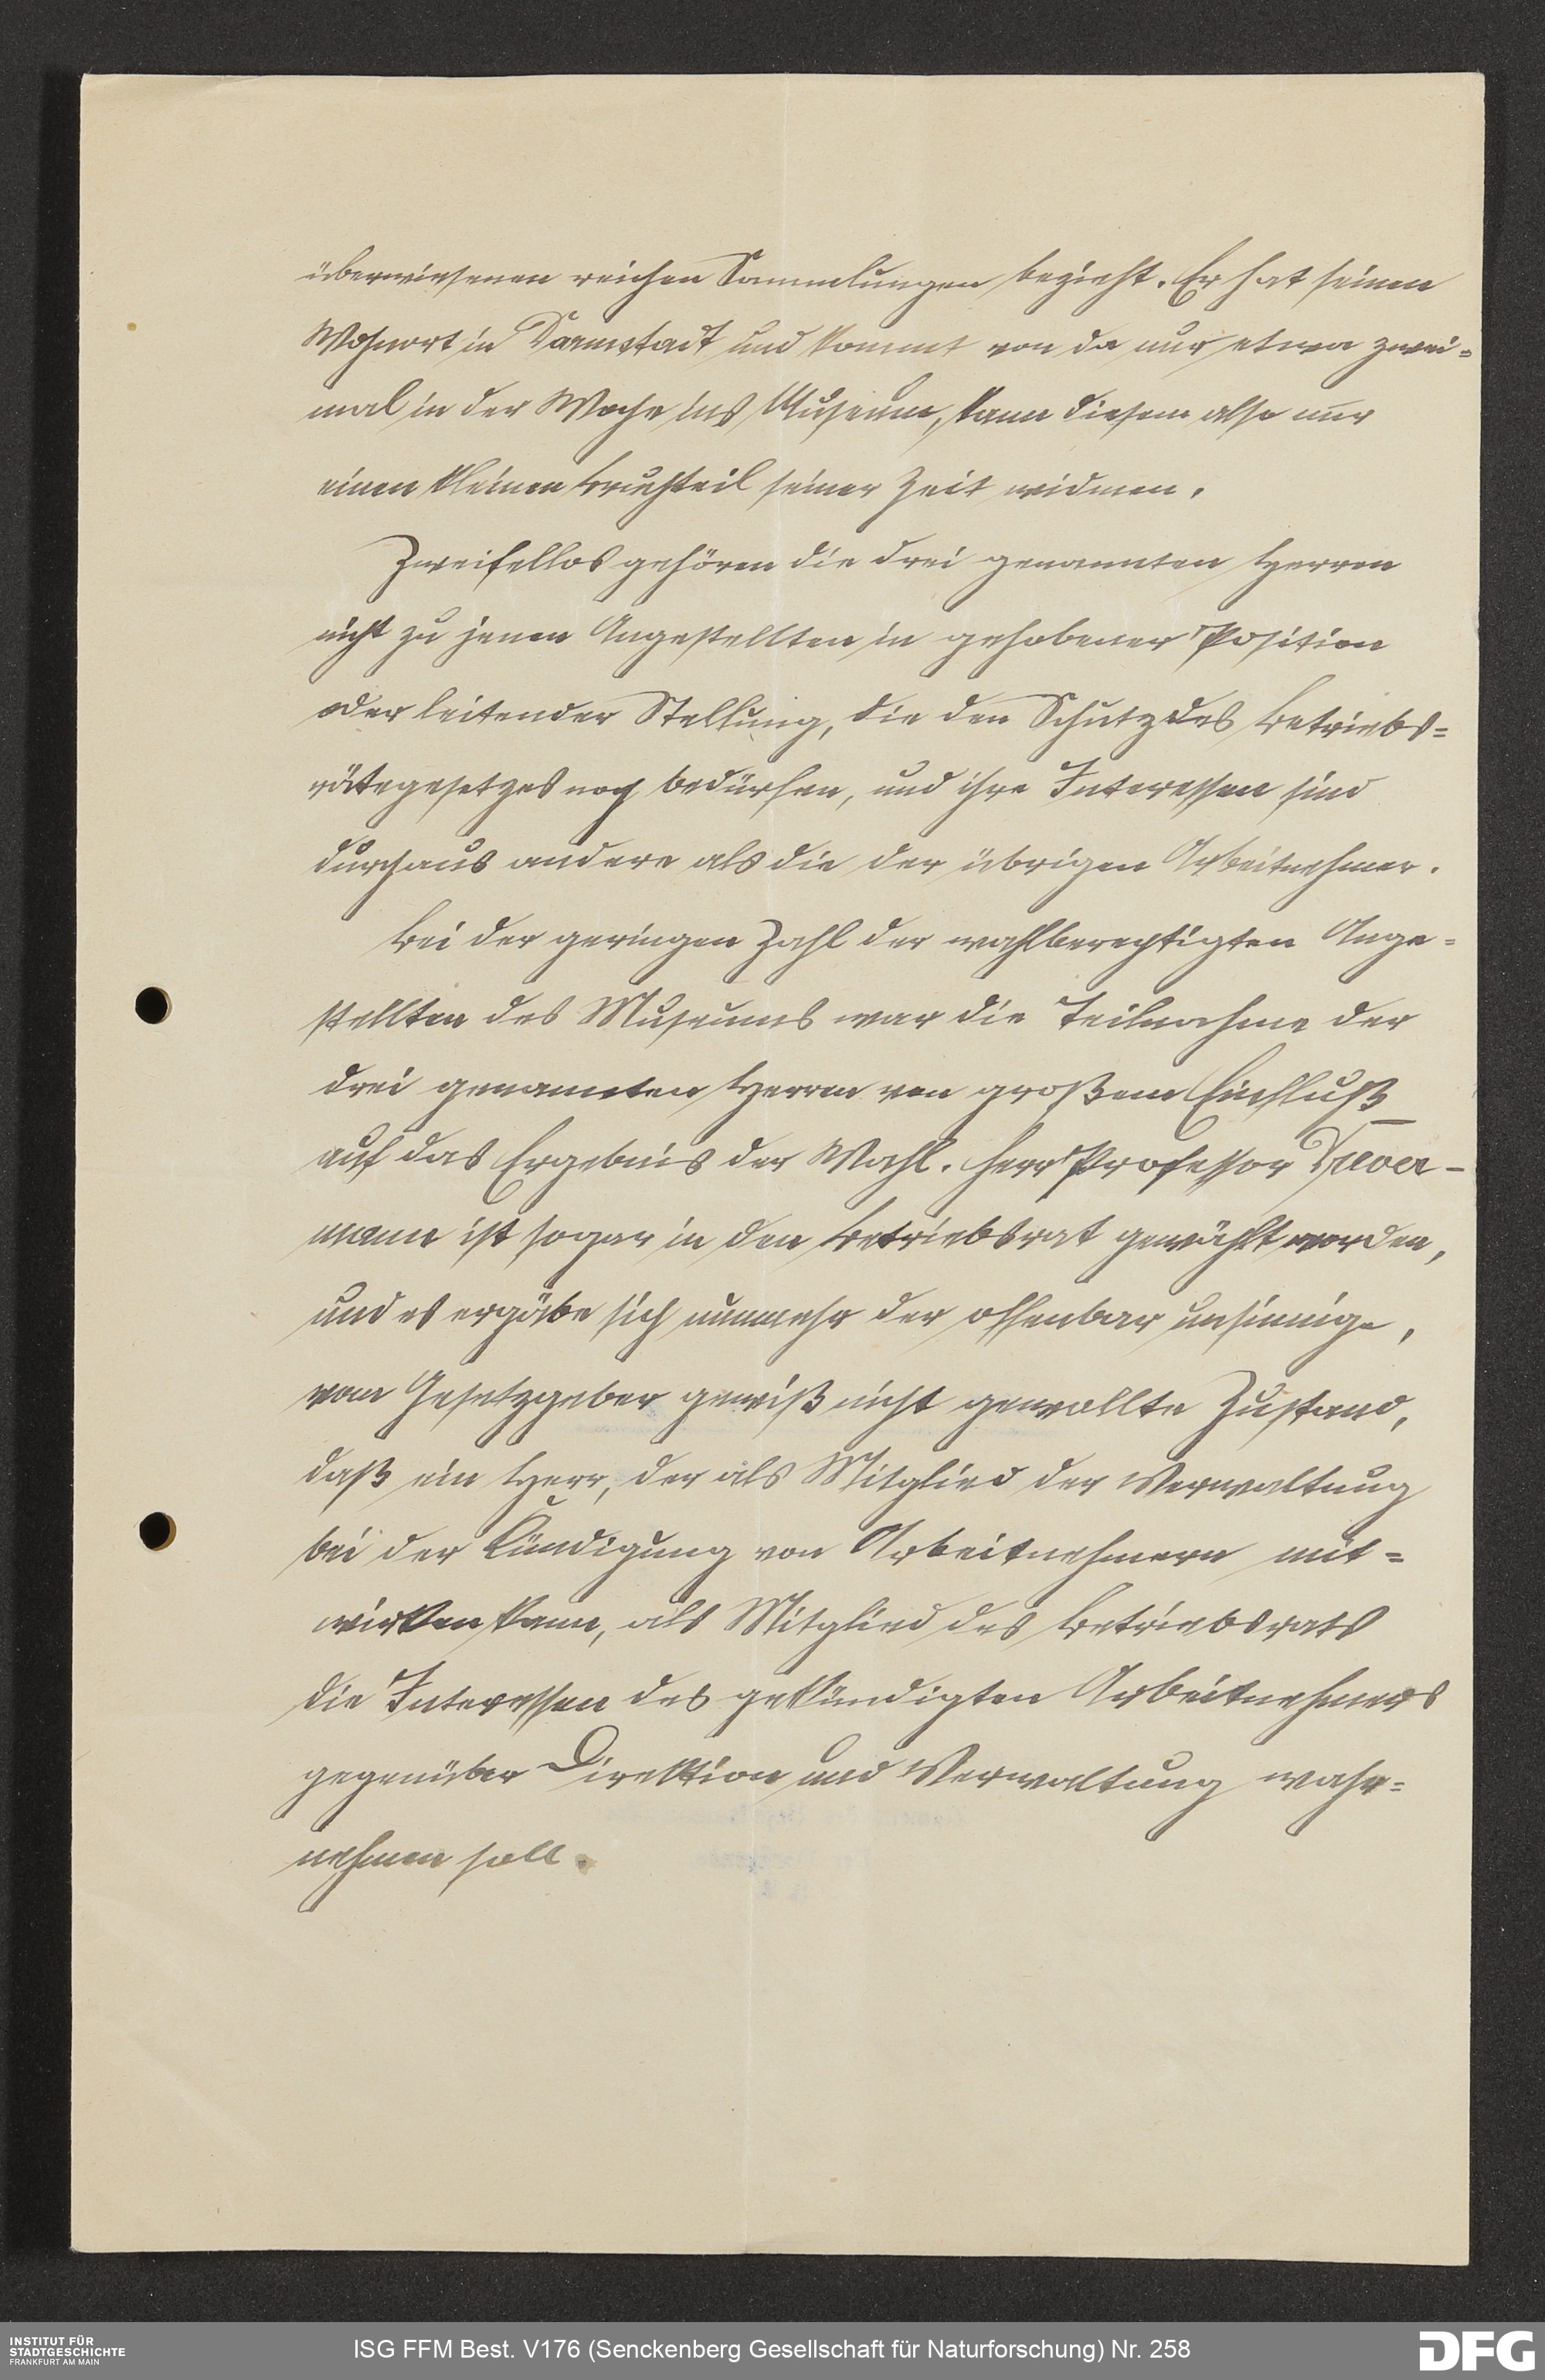 überwiesenen reichen Sammlungen bezieht. Er hat seinen
Wohnort in Darmstadt und kommt von da nur etwa zwei=
mal in der Woche ins Museum, kann diesem also nur
einen kleinen Bruchteil seiner Zeit widmen.
Zweifellos gehören die drei genannten Herren
nicht zu jenen Angestellten in gehobener Position
oder leitender Stellung, die den Schutz des Betriebs=
rätegesetzes noch bedürfen, und ihre Interessen sind
durchaus andere als die der übrigen Arbeitnehmer.
Bei der geringen Zahl der wahlberechtigten Ange=
stellten des Museums war die Teilnahme der
drei genannten Herren von großem Einfluß
auf das Ergebnis der Wahl. Herr Professor Drever-
mann ist sogar in den Betriebsrat gewählt worden,
und es ergäbe sich nunmehr der offenbar unsinnige,
vom Gesetzgeber gewiß nicht gewollte Zustand,
daß ein Herr, der als Mitglied der Verwaltung
bei der Kündigung von Arbeitnehmern mit=
wirken kann, als Mitglied des Betriebsrats
die Interessen des gekündigten Arbeitnehmers
gegenüber Direktion und Verwaltung wahr=
nehmen soll.
INSTITUT FÜR
STADTGESCHICHTE
FRANKFURT AM MAIN
ISG FFM Best. V176 (Senckenberg Gesellschaft für Naturforschung) Nr. 258
DFG